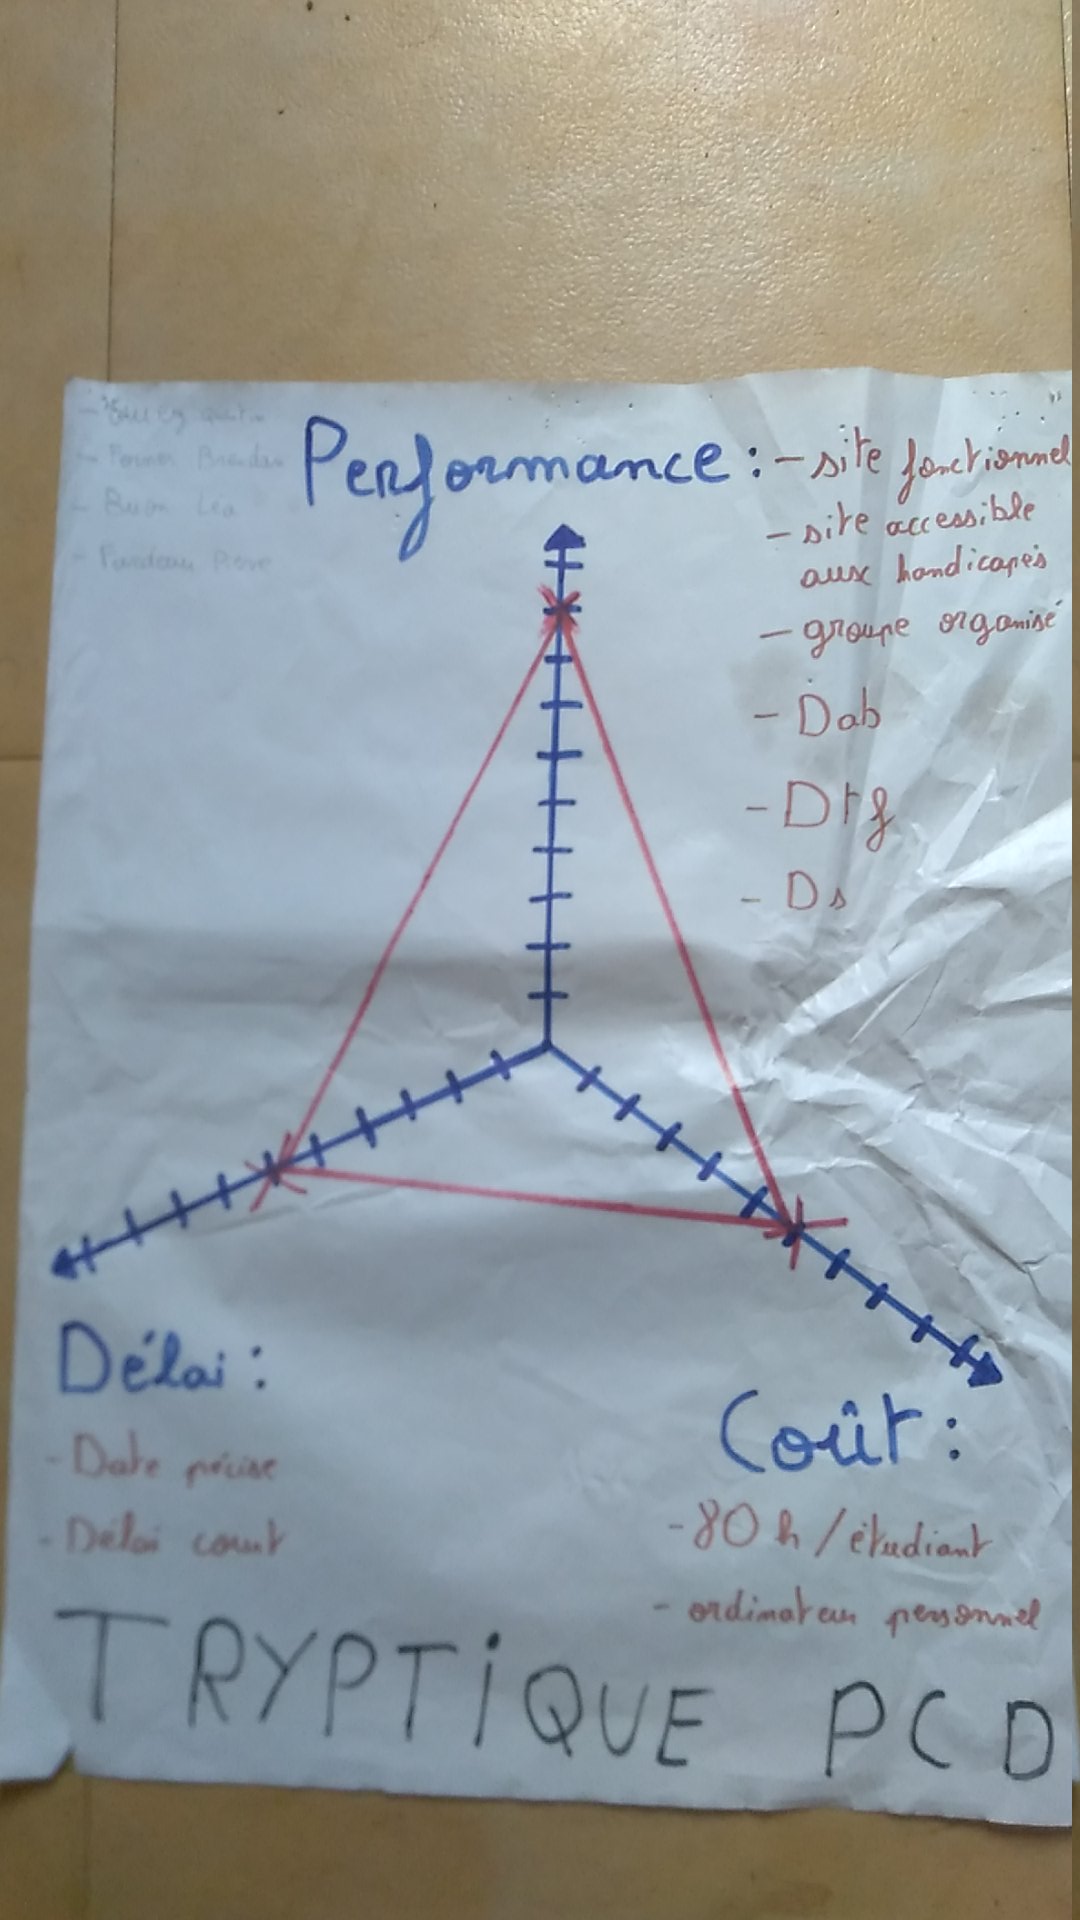 Performance : - site fonctionnel
- site accessible
aux handicapés
- groupe organisé
- Dab
- Dtf
- Ds
Délai :
- Date précise
- Délai court
Coût :
- 80 h / étudiant
- ordinateur personnel
TRYPTIQUE PCD